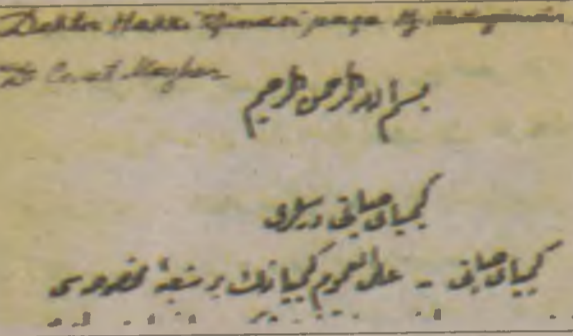 Doktor Hakki Şinasi paşa
Dr Cevat Mazhar
بسم الله الرحمن الرحيم
كيمياى حياتى درسلرى
كيمياى حياتى - على العموم كيميانك بر شعبۀ مخصوصه سى